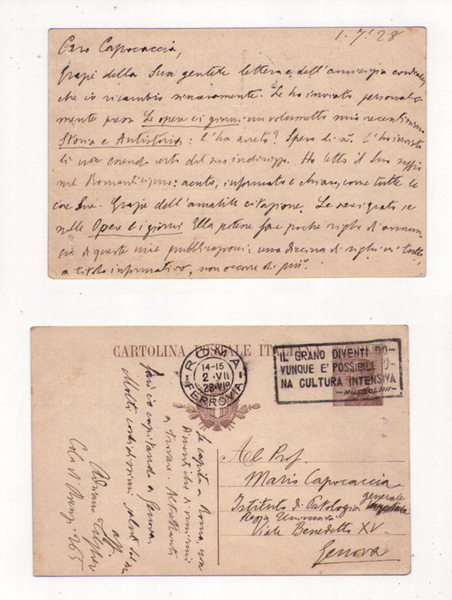 1.7.'28
Caro Capocaccia,
Grazie della Sua gentile lettera e dell'amicizia cordiale,
che io ricambio sinceramente. Le ho inviato personal-
mente presso Le opere e i giorni un volumetto mio recentissimo
Storia e Antistoria: l'ha avuto? Spero di sì. L'ho inviato
lì non essendo certo del suo indirizzo. Ho letto il Suo saggio
sul Romanticismo: acuto, informato e chiaro, come tutte le
cose Sue. Grazie dell'amabile citazione. Le sarei grato se
nelle Opere e i giorni Ella potesse fare poche righe di annun-
cio di queste mie pubblicazioni: una decina di righe in tutto
a titolo informativo, non occorre di più.
CARTOLINA POSTALE ITALIANA
ROMA
14-15
2 · VII
28·VI
FERROVIA
IL GRANO DIVENTI DO-
VUNQUE E' POSSIBILE
NA CULTURA INTENSIVA
- MUSSOLINI -
Al Prof.
Mario Capocaccia
Istituto di Patologia generale
Regia Università
Viale Benedetto XV
Genova
Se capita a Roma, non
dimentichi di venirmi
a trovare. Altrettanto
farei io capitando a Genova.
Molti cordialissimi saluti da
Adriano Tilgher
Cola di Rienzo, 265